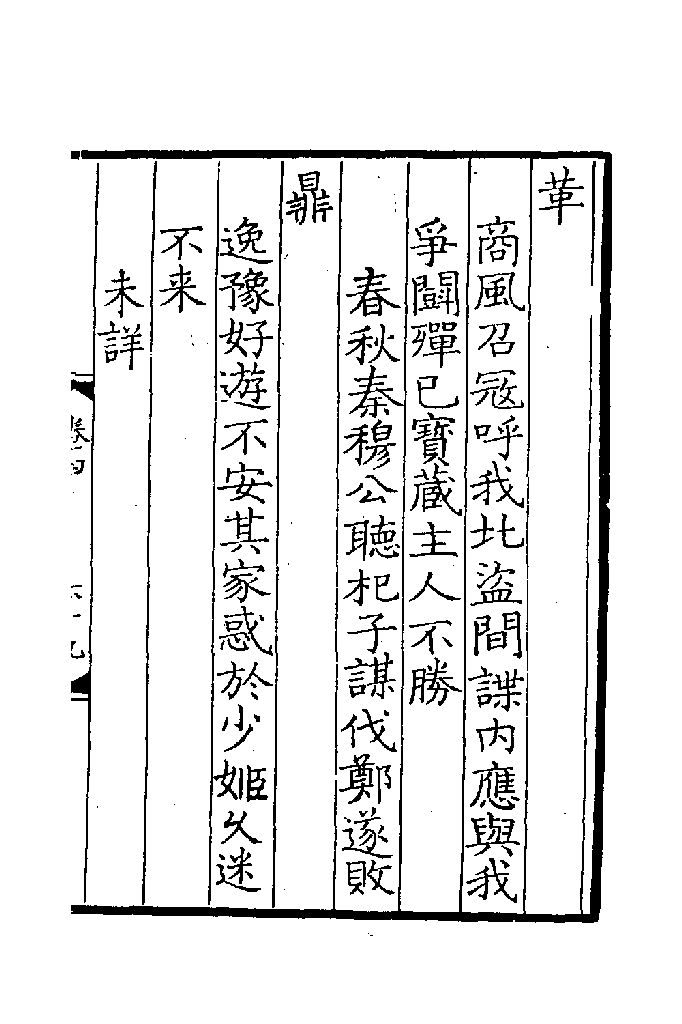 革
商風召冦呼我北盜間諜内應與我
爭鬭殫巳寶蔵主人不勝
春秋秦穆公聽杞子謀伐鄭遂敗
鼎
逸豫好遊不安其家惑於少姬乆迷
不来
未詳
卷四
六十九